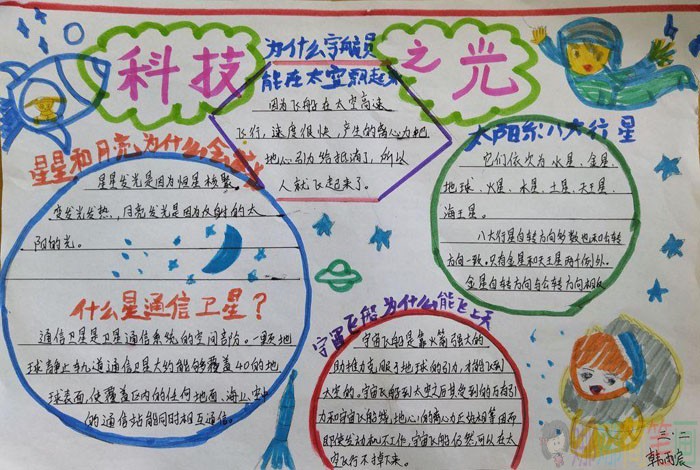 科技
之光
为什么宇航员
能在太空飘起来
因为飞船在太空高速
飞行，速度很快，产生的离心力把
地心引力给抵消了，所以
人就飞起来了。
星星和月亮为什么会
星星发光是因为恒星核聚
变发光发热，月亮发光是因为反射的太
阳的光。
什么星通信卫星？
通信卫星是卫星通信系统的空间部份。一颗地
球静止轨道通信卫星大约能够覆盖40的地
球表面，使覆盖区内的任何地面、海上、空中
的通信站能同时相互通信。
太阳系八大行星
它们依次为水星、金星、
地球、火星、木星、土星、天王星、
海王星。
八大行星自转方向多数也和公转
方向一致。只有金星和天王星两个例外。
金星自转方向与公转方向相反
宇宙飞船为什么能飞上天
宇宙飞船是靠火箭强大的
助推力克服了地球的引力，才能飞到
太空的。宇宙飞船到太空后其受到的万有引
力和宇宙飞船绕地心的离心力正好相等因而
即使发动机不工作，宇宙飞船仍然可以在太
空飞行不掉下来。
三·二